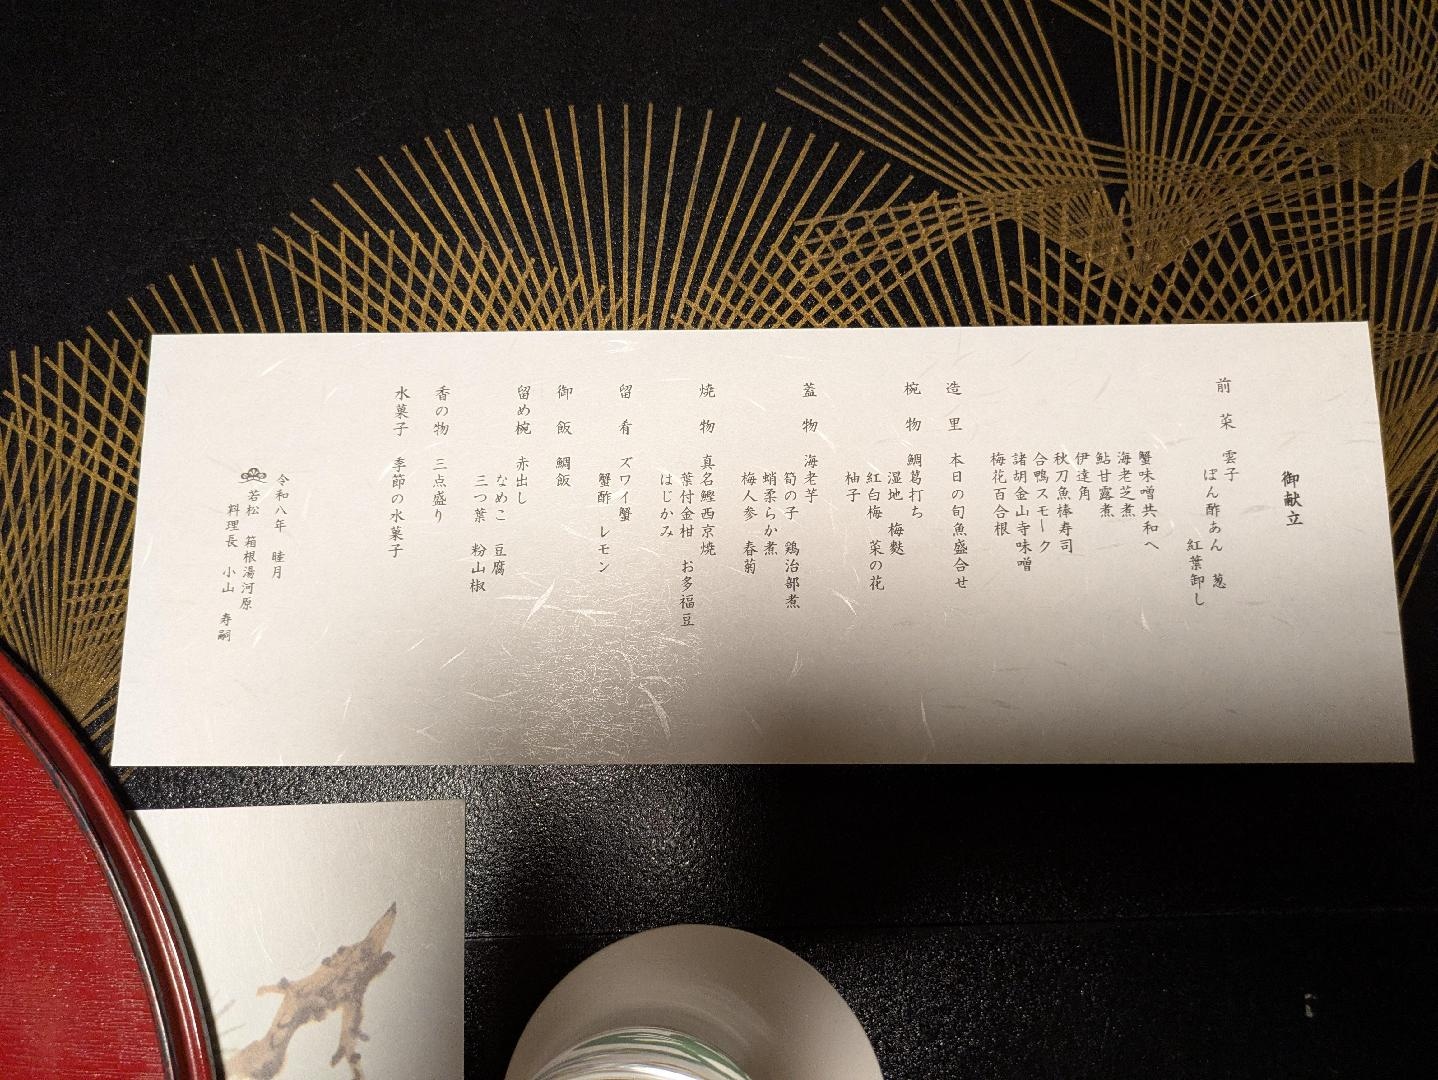 御献立
前菜　雲子
ぽん酢あん　葱
紅葉卸し
蟹味噌共和へ
海老芝煮
鮎甘露煮
伊達角
秋刀魚棒寿司
合鴨スモーク
諸胡金山寺味噌
梅花百合根
造里　本日の旬魚盛合せ
椀物　鯛葛打ち
湿地　梅麩
紅白梅　菜の花
柚子
蓋物　海老芋
筍の子　鶏治部煮
蛸柔らか煮
梅人参　春菊
焼物　真名鰹西京焼
葉付金柑　お多福豆
はじかみ
留肴　ズワイ蟹
蟹酢　レモン
御飯　鯛飯
留め椀　赤出し
なめこ　豆腐
三つ葉　粉山椒
香の物　三点盛り
水菓子　季節の水菓子
令和八年　睦月
若松　箱根湯河原
料理長　小山　寿嗣